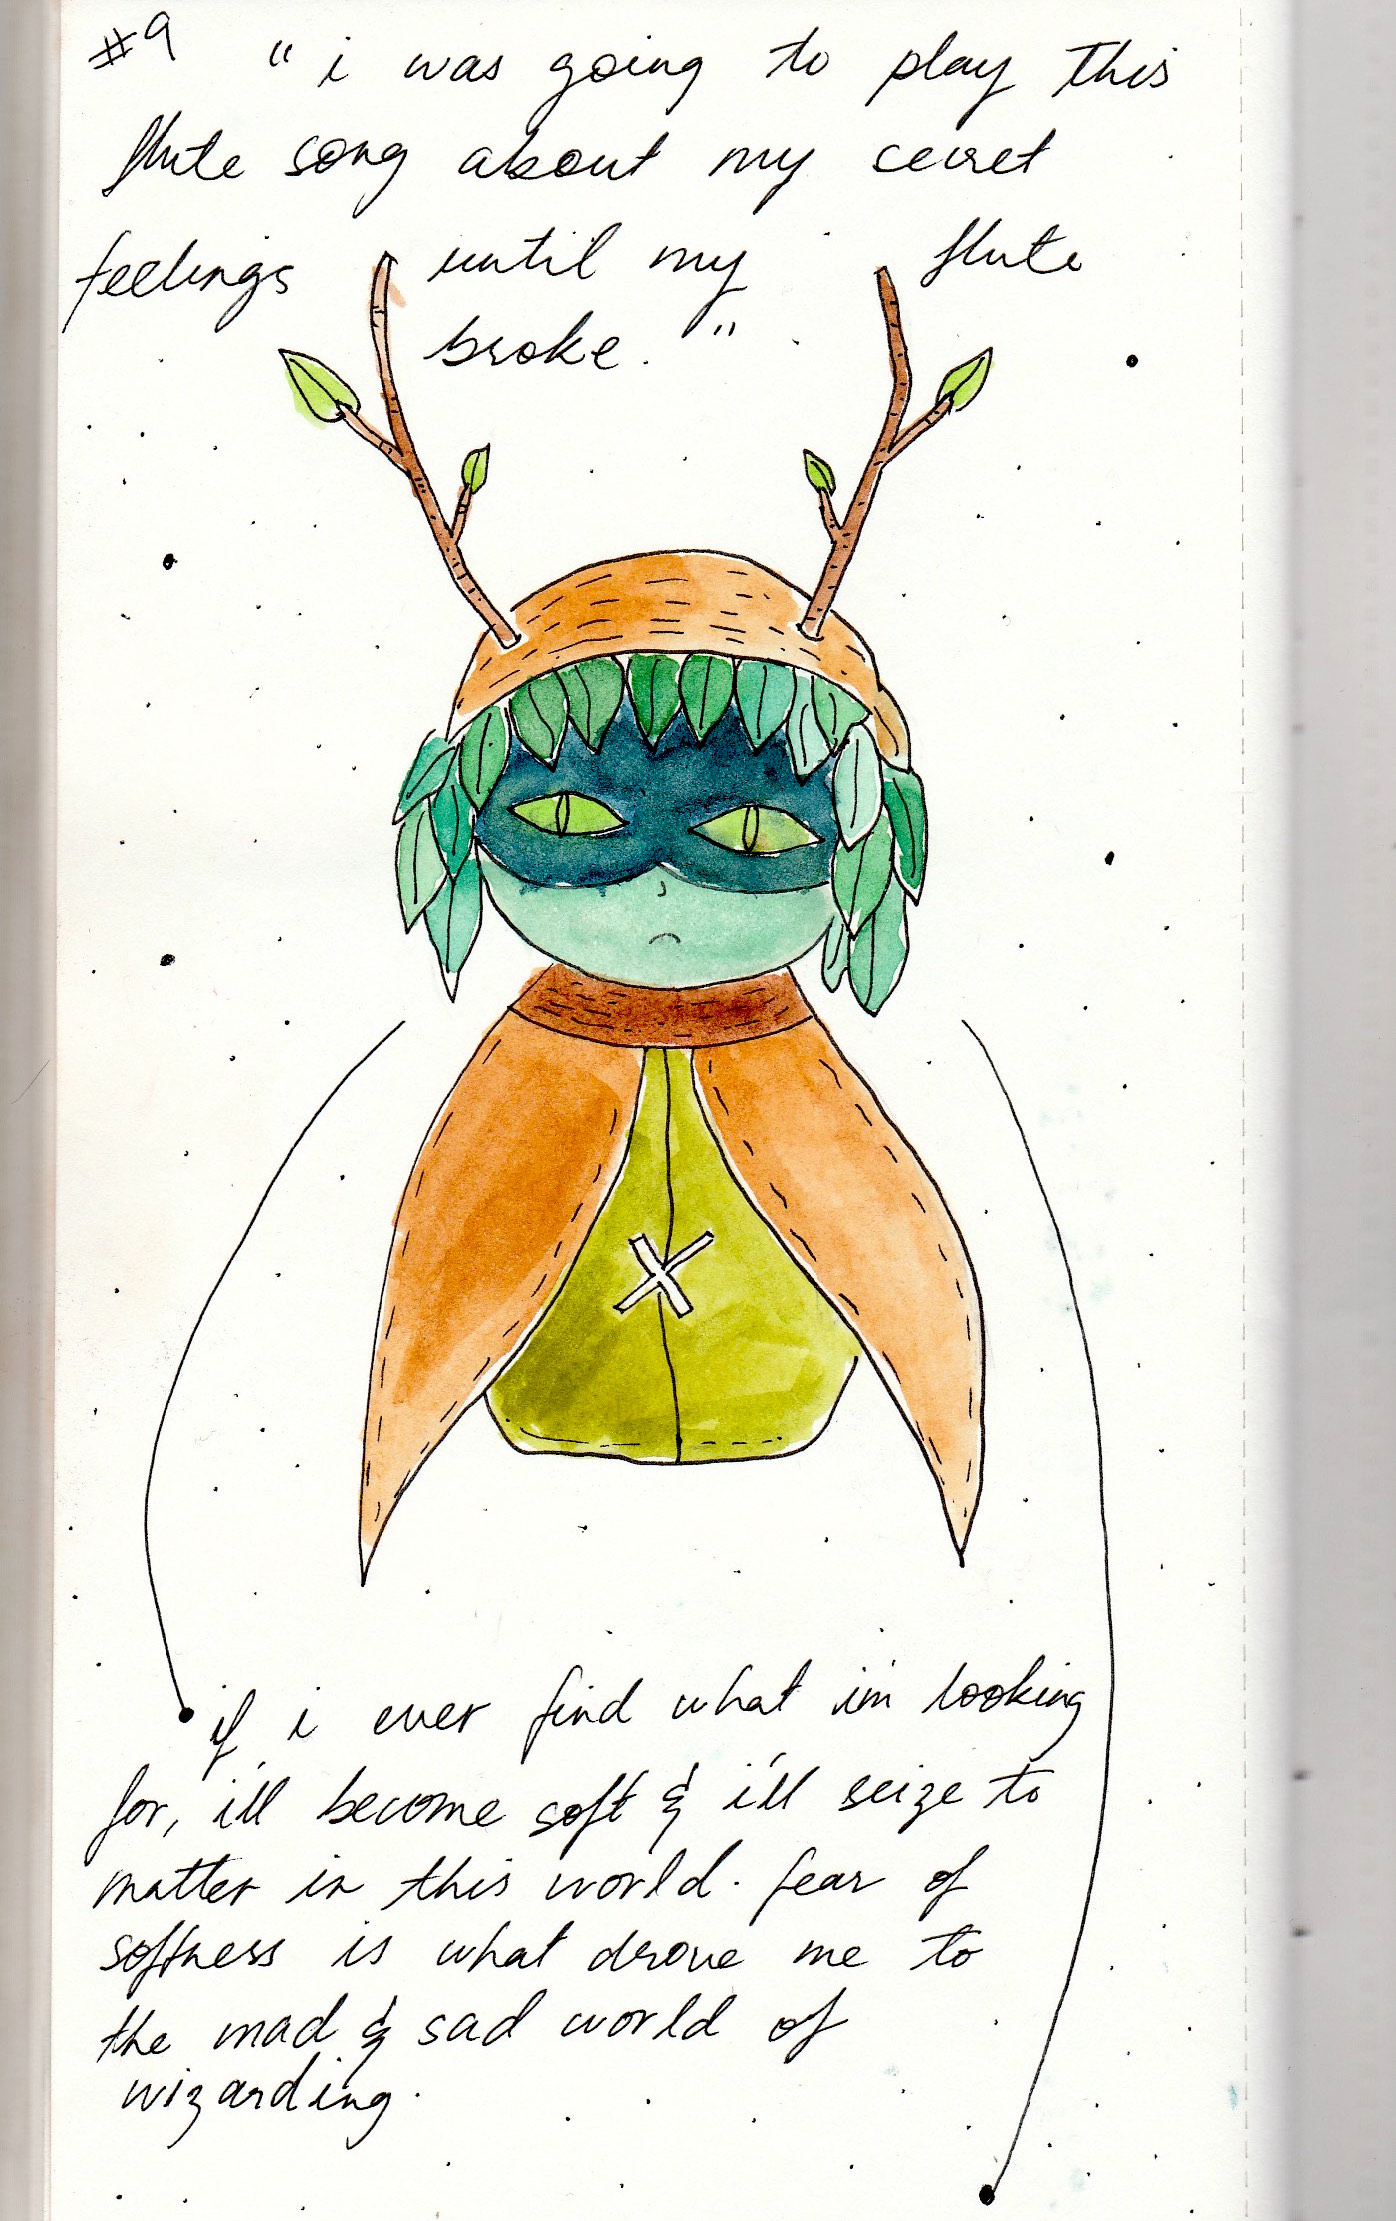 #9 "i was going to play this
flute song about my secret
feelings until my flute
broke."
if i ever find what i'm looking
for, i'll become soft & i'll seize to
matter in this world. fear of
softness is what drove me to
the mad & sad world of
wizarding.